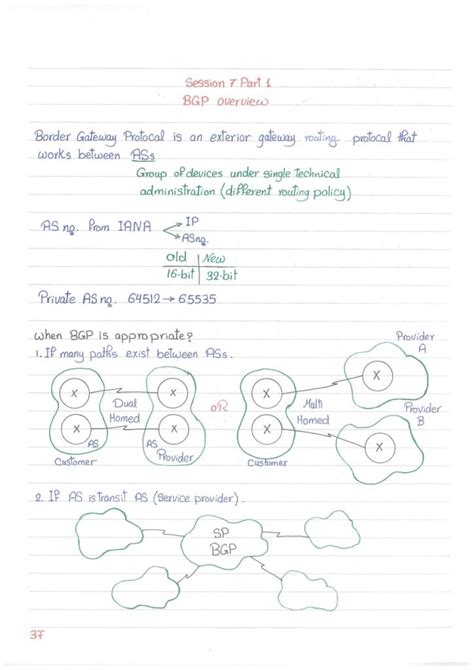 Session 7 Part 1
BGP overview
Border Gateway Protocal is an exterior gateway routing protocal that
works between ASs
Group of devices under single technical
administration (different routing policy)
AS no. from IANA
IP
ASno.
old New
16-bit 32-bit
Private AS no. 64512 → 65535
when BGP is appropriate?
1. If many paths exist between ASs.
Provider
A
X X X X
Dual
Homed
OR
Multi
Homed
Provider
B
X X X X
AS AS
Customer
Provider
Customer
2. If AS is transit AS (service provider).
SP
BGP
37